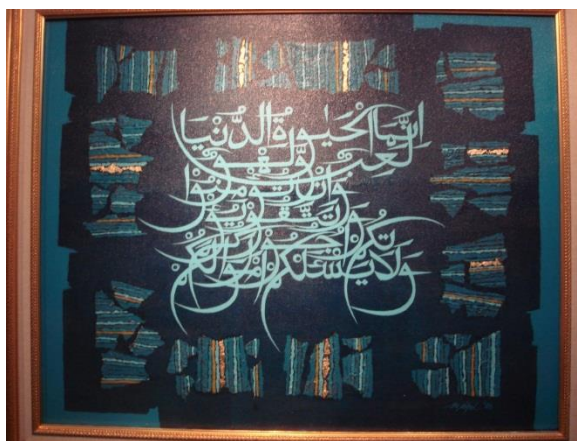 إنما الحيوة الدنيا
لعب ولهو
وإن تؤمنوا
وتتقوا يؤ
تكم أجوركم
ولا يسئلكم أموالكم